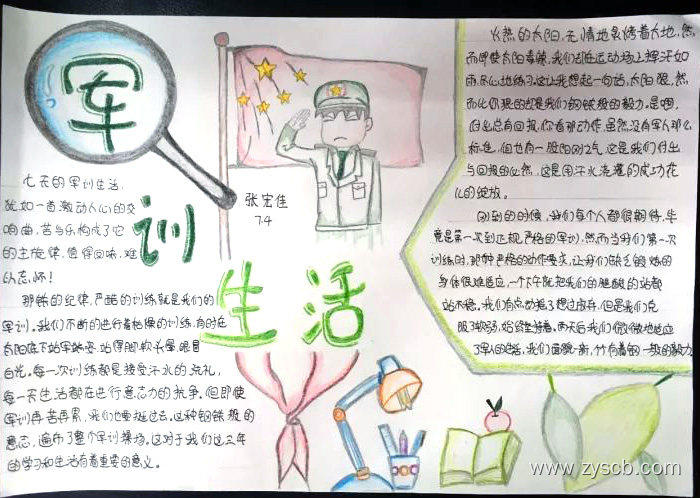 军
训
生活
张宏佳
7.4
七天的军训生活,
犹如一首激动人心的交
响曲,苦与乐构成了它
的主旋律,值得回味,难
以忘怀!
那铁的纪律,严酷的训练就是我们的
军训。我们不断的进行着枯燥的训练,有时在
太阳底下站军姿,站得脚软头晕,眼冒
白光。每一次训练都是接受汗水的洗礼,
每一天生活都在进行意志力的抗争。但即使
军训再苦再累,我们也要挺过去。这种钢铁般的
意志,遍布了整个军训操场。这对于我们这三年
的学习和生活有着重要的意义。
火热的太阳,无情地炙烤着大地,然
而即使太阳毒辣,我们却在运动场上挥汗如
雨,尽心地练习。这让我想起一句话,太阳狠,然
而比你狠的却是我们钢铁般的毅力。是啊,
付出总有回报,你看那动作,虽然没有军人那么
标准,但也有一股阳刚之气,这是我们付出
与回报的必然,这是用汗水浇灌的成功花
儿的绽放。
刚到的时候,我们每个人都很期待,毕
竟是第一次到正规严格的军训,然而当我们第一次
训练时,那种严格的动作要求,让我们缺乏锻炼的
身体很难适应,一个下午就把我们的腿酸的站都
站不稳。我们有点动摇了想过放弃,但是我们克
服了软弱,始终坚持着。两天后我们慢慢地适应
了军人的生活。我们面貌一新,竹有着钢一般的毅力
www.zyscb.com